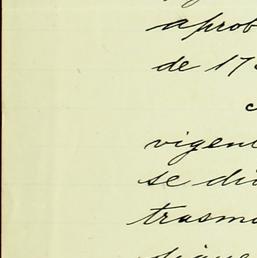 aprob
de 17
vigen
se di
trasm